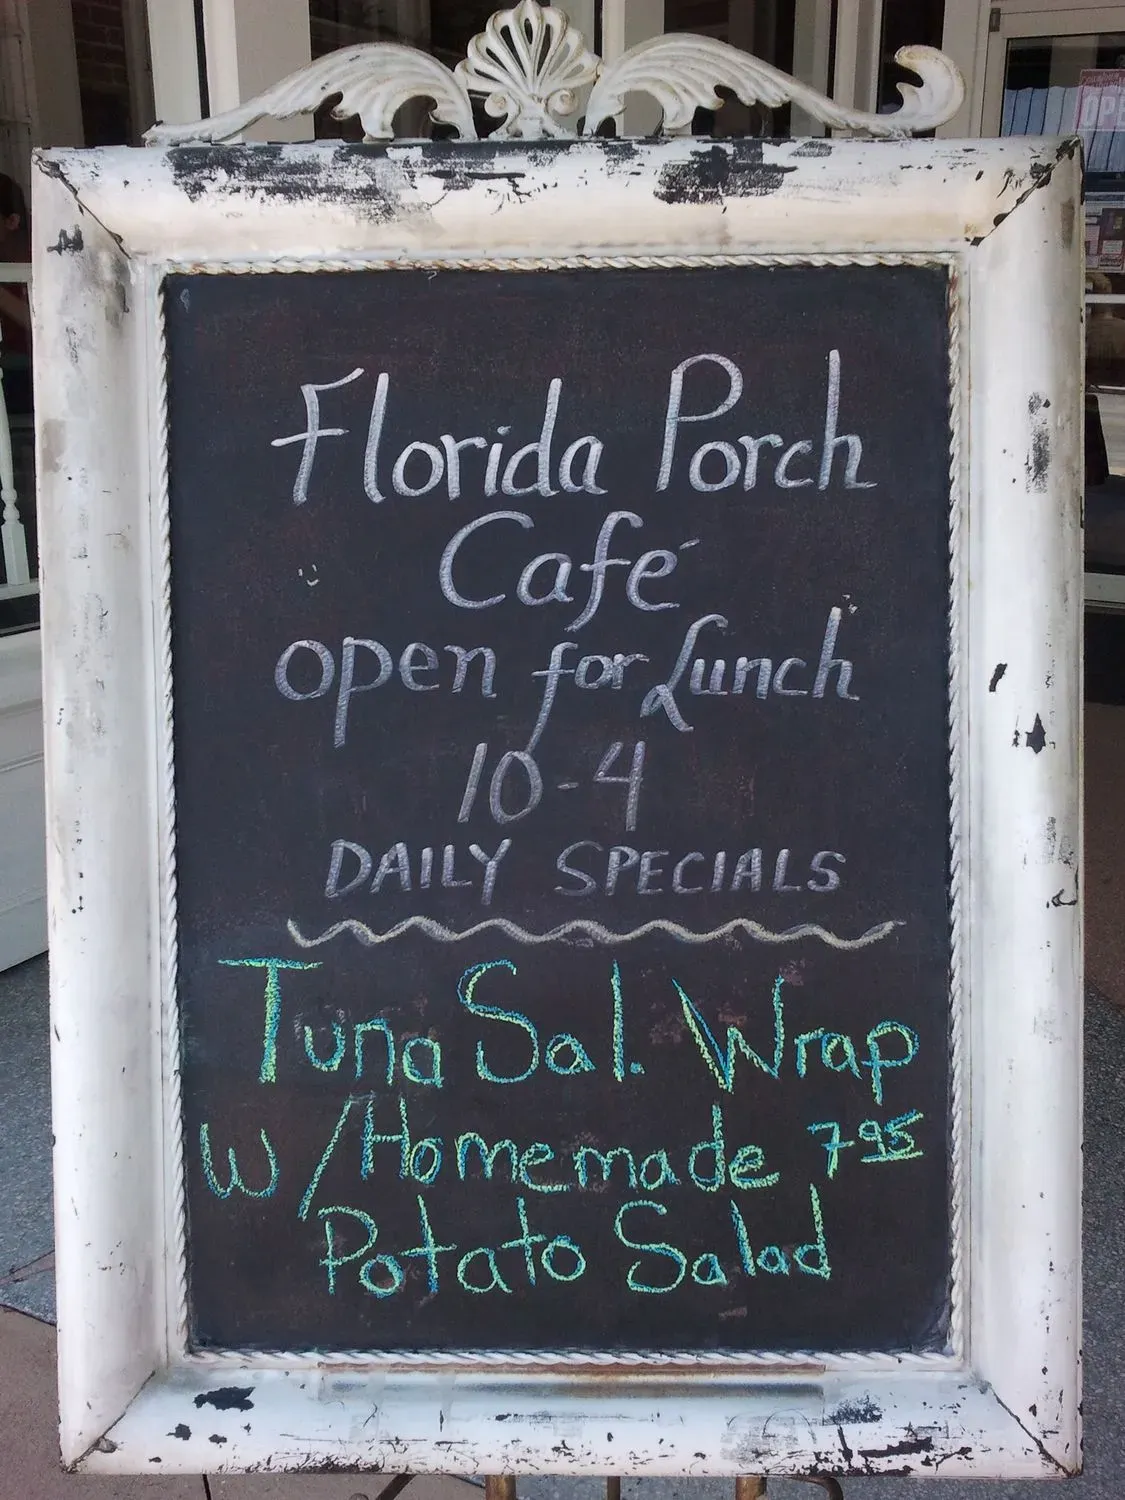 Florida Porch
Café
open for Lunch
10-4
DAILY SPECIALS
Tuna Sal. Wrap
W/Homemade 7 95
Potato Salad